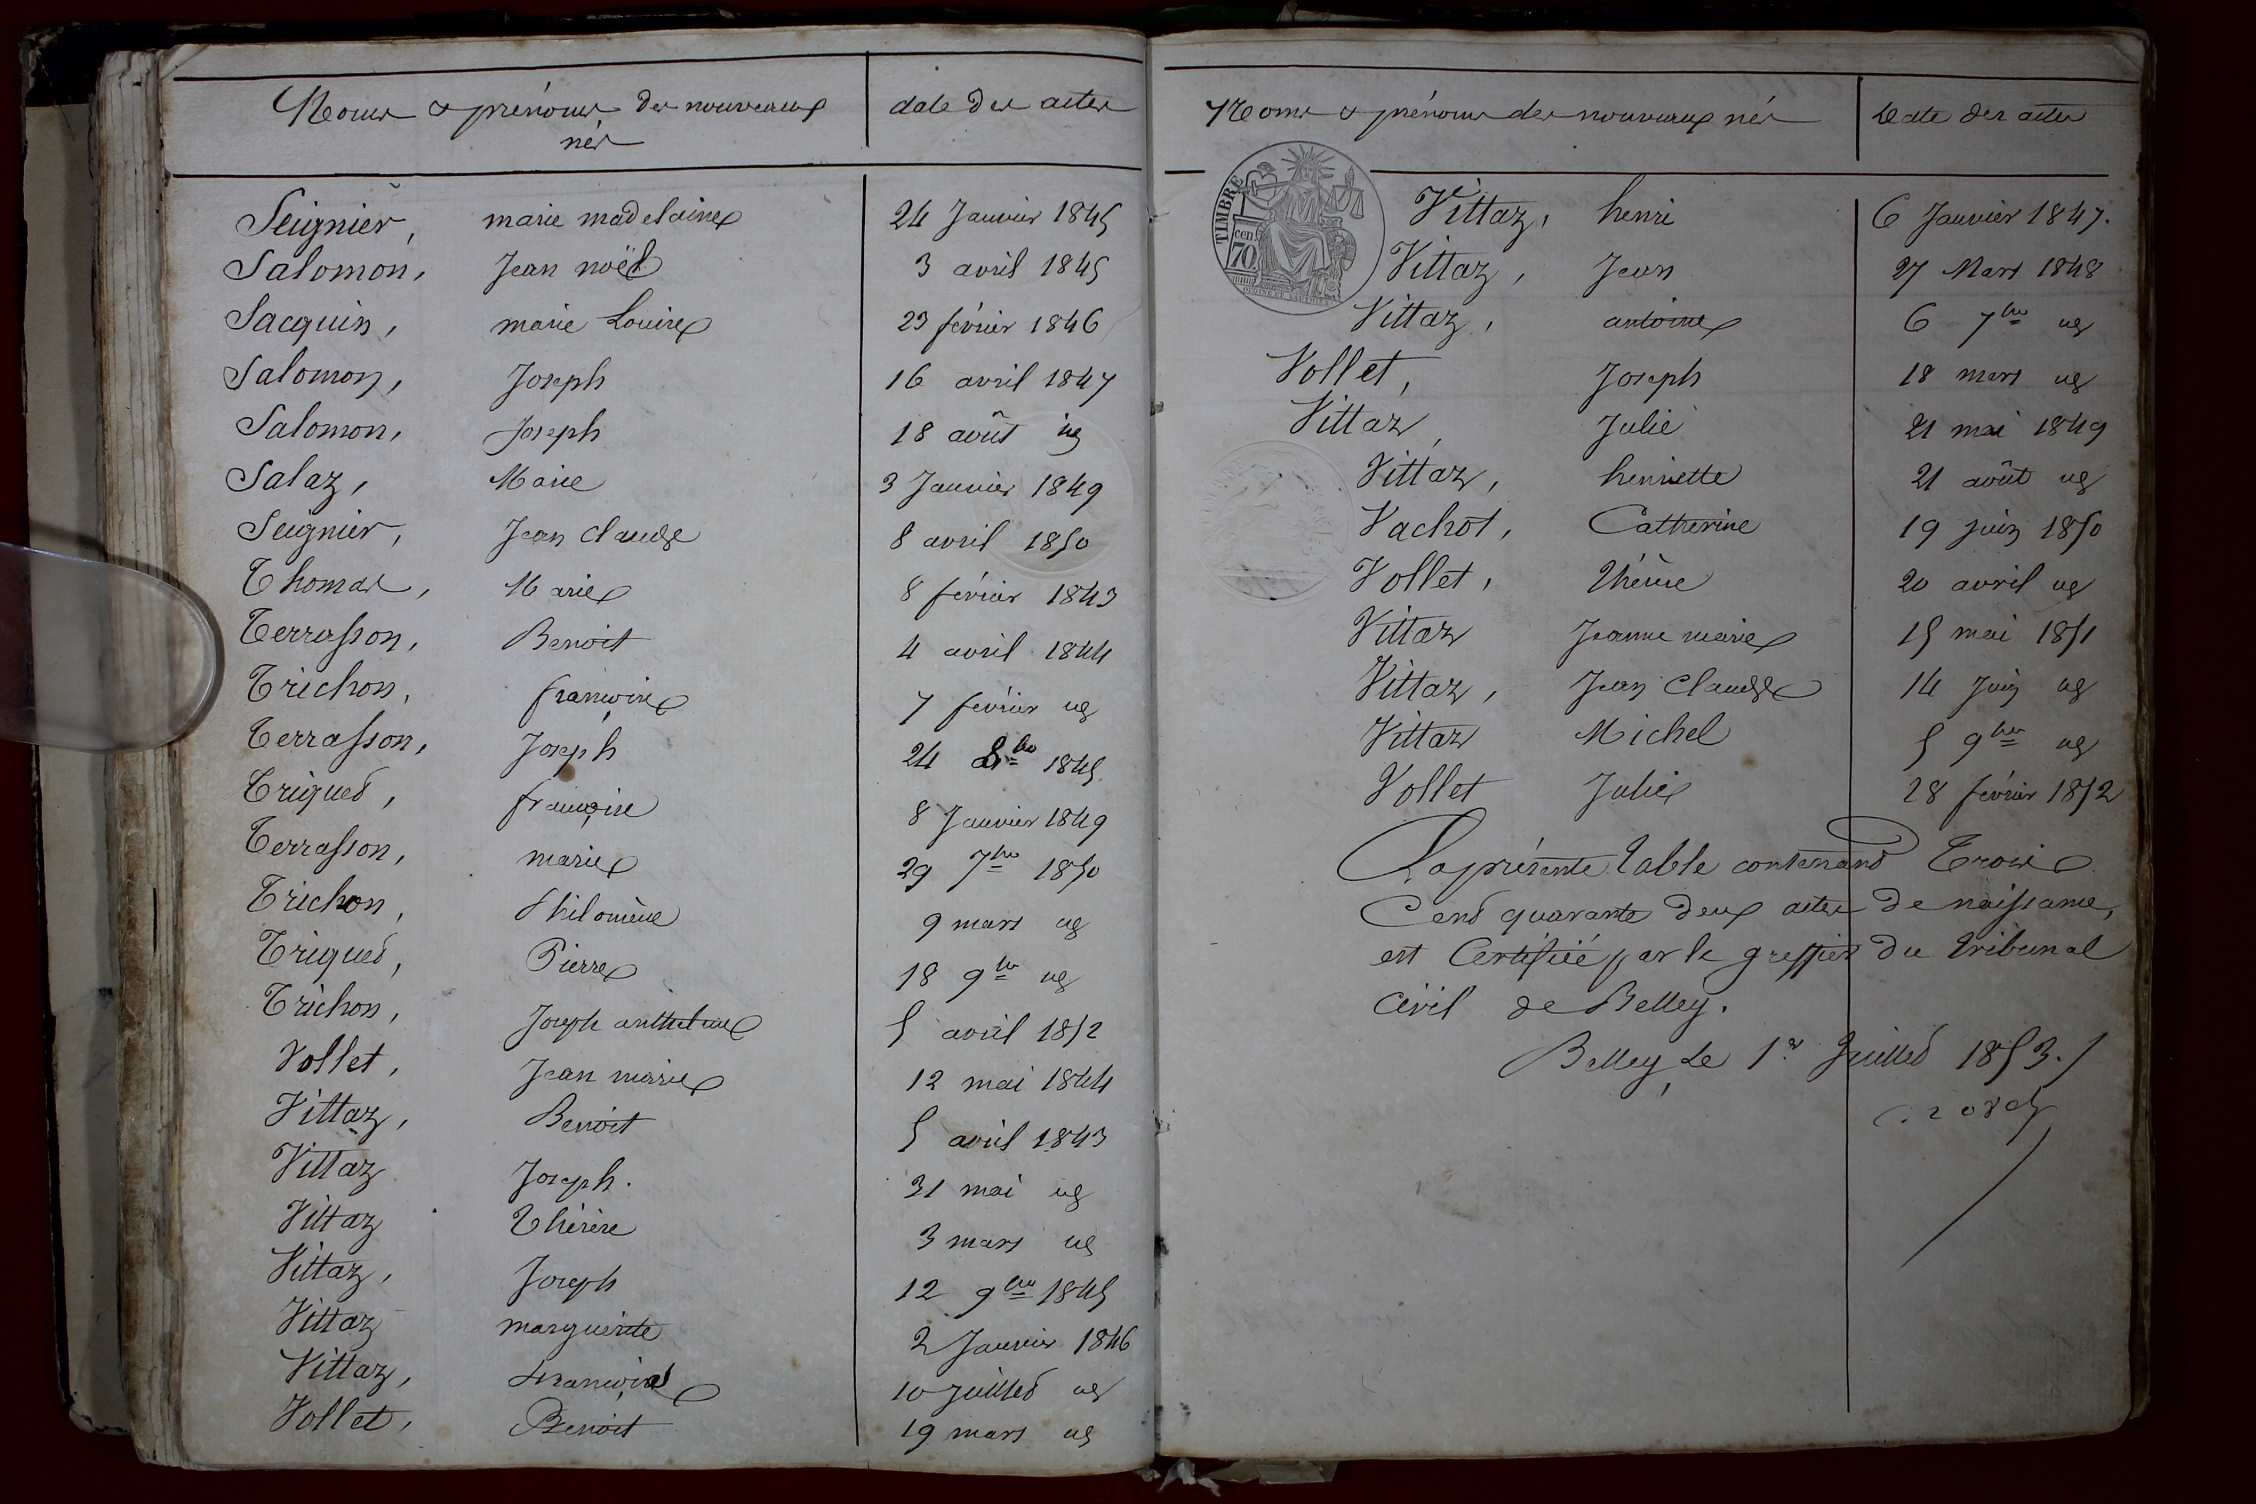 Noms & prénoms des nouveaux
nés
date des actes
Seignier, marie madelaine 24 Janvier 1845
Salomon, Jean noël 3 avril 1845
Sacquin, marie Louise 23 février 1846
Salomon, Joseph 16 avril 1847
Salomon, Joseph 18 août id
Salaz, Marie 3 Janvier 1849
Seignier, Jean Claude 8 avril 1850
Thomas, Marie 8 février 1843
Terrasson, Benoit 4 avril 1844
Trichon, françoise 7 février id
Terrasson, Joseph 24 8bre 1845
Triquet, françoise 8 Janvier 1849
Terrasson, marie 29 7bre 1850
Trichon, Philomène 9 mars id
Triquet, Pierre 18 9bre id
Trichon, Joseph anthelme 5 avril 1852
Vollet, Jean marie 12 mai 1844
Vittaz, Benoit 5 avril 1843
Vittaz Joseph. 31 mai id
Vittaz Thérèse 3 mars id
Vittaz, Joseph 12 9bre 1845
Vittaz marguerite 2 Janvier 1846
Vittaz, 10 Juillet id
Vollet, Benoit 19 mars id
Noms & prénoms des nouveaux nés
Date des actes
TIMBRE
70 cen.
Vittaz, henri 6 Janvier 1847.
Vittaz, Jean 27 Mars 1848
Vittaz, antoine 6 7bre id
Vollet, Joseph 18 mars id
Vittaz, Julie 21 mai 1849
Vittaz, henriette 21 août id
Vachot, Catherine 19 juin 1850
Vollet, 20 avril id
Vittaz Jeanne marie 15 mai 1851
Vittaz, Jean Claude 14 Juin id
Vittaz Michel 5 9bre id
Vollet Julie 28 février 1852
La présente table contenant Trois
Cent quarante deux actes de naissance,
est Certifiée par le greffier du tribunal
civil de Belley.
Belley, Le 1er Juillet 1853./